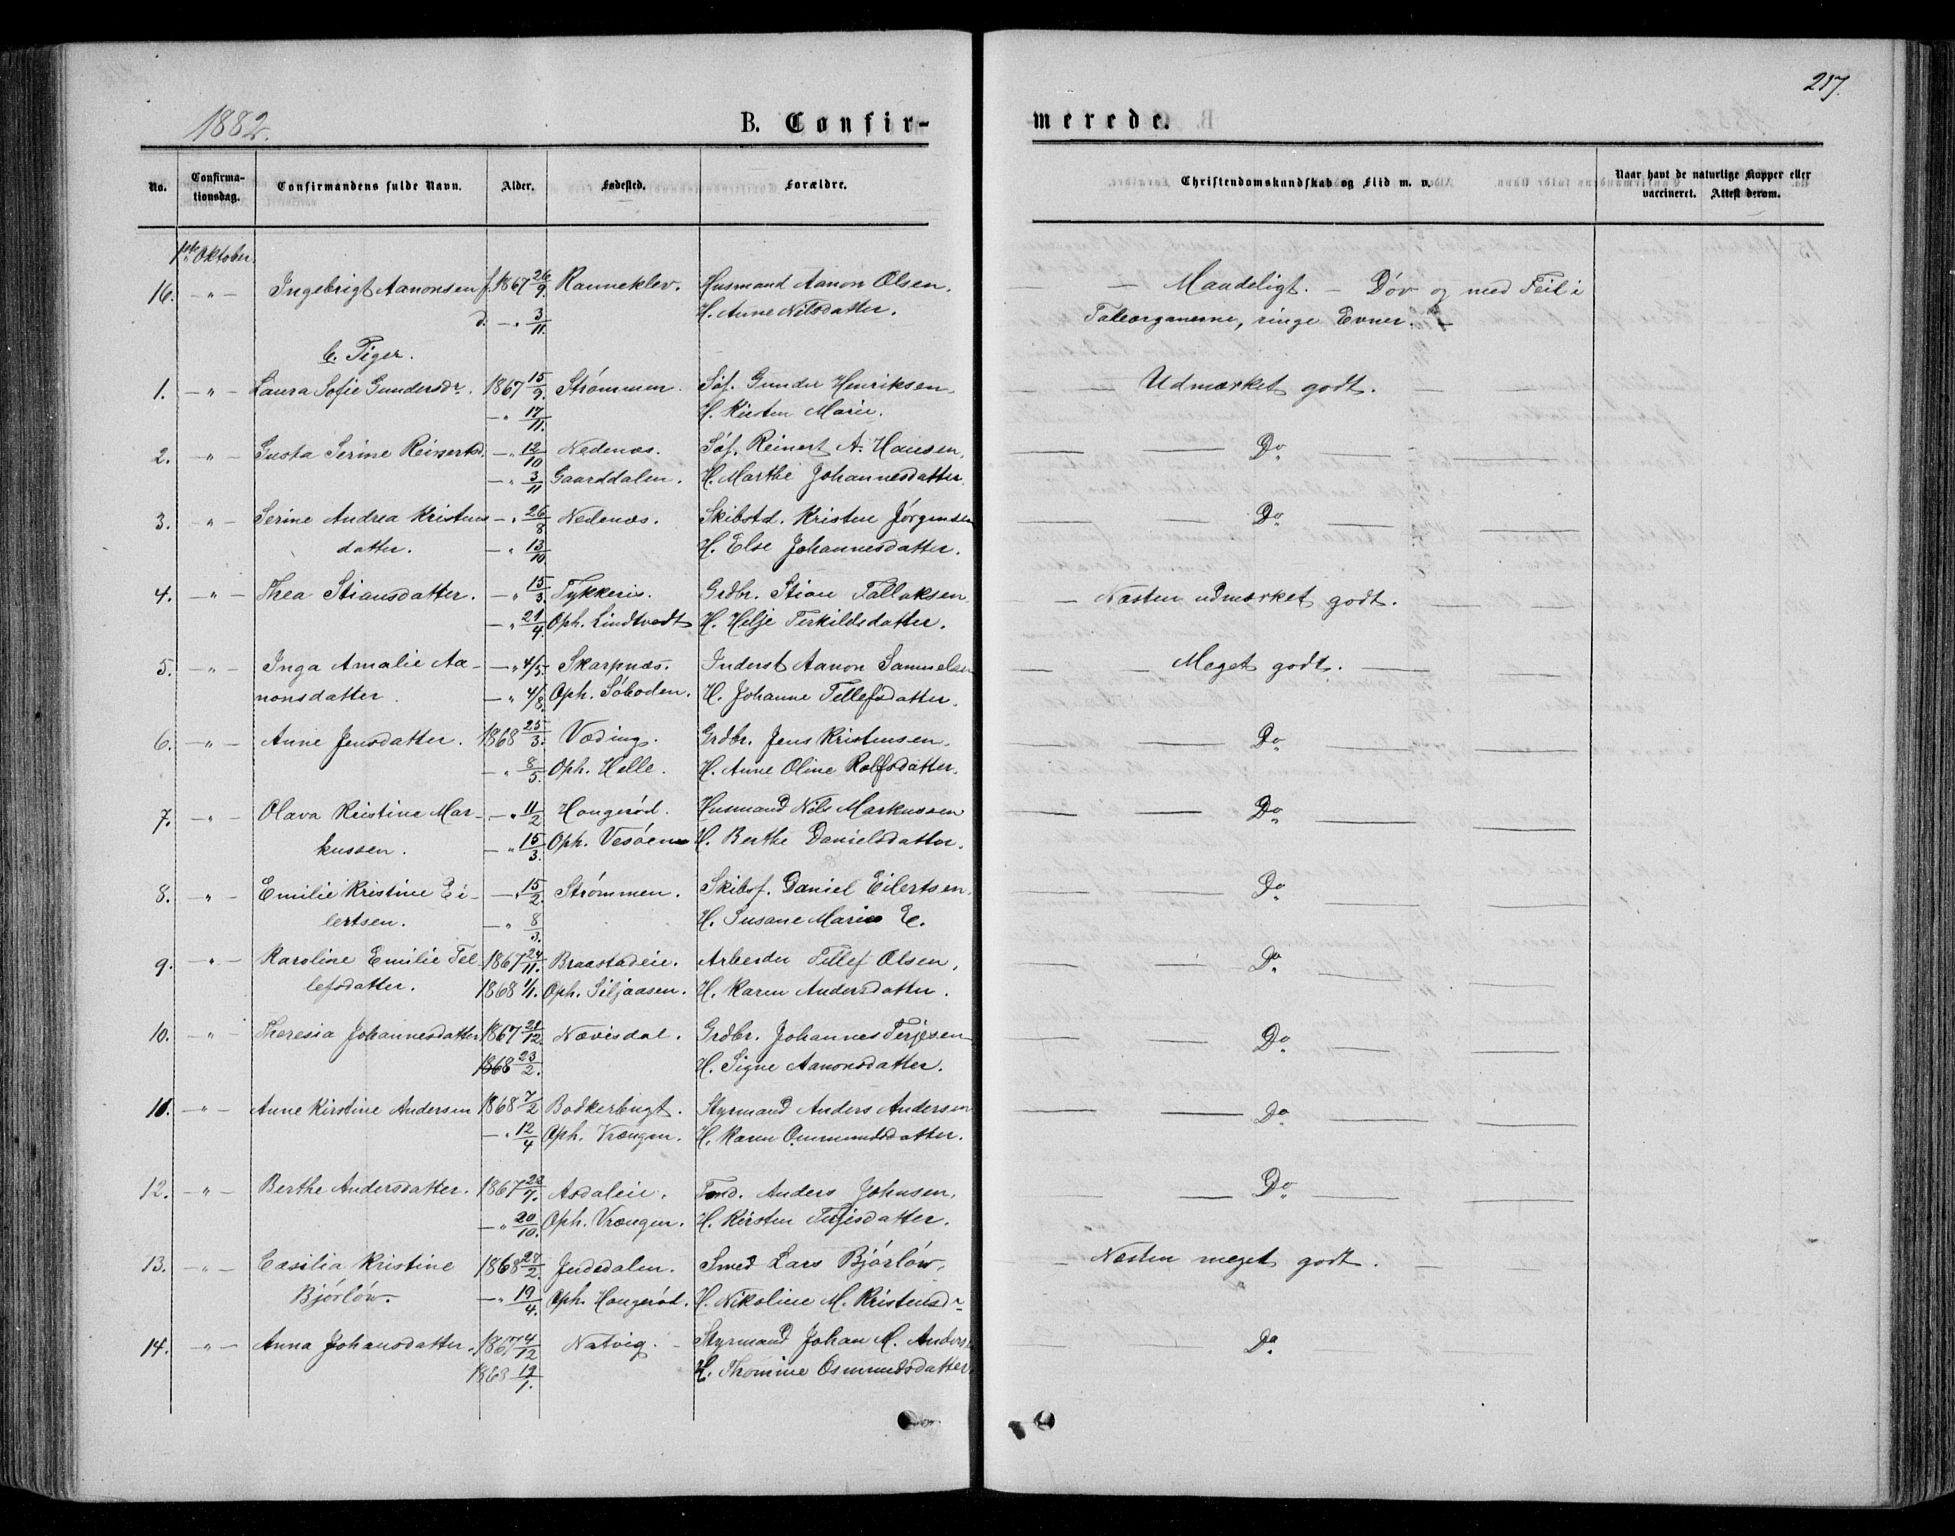 217.
1882.
B. Confir-
merede.
No.
Confirma-
tionsdag.
Confirmandens fulde Navn.
Alder.
Fødested.
Forældre.
Christendomskundskab og Flid m. v.
Naar havt de naturlige Kopper eller
vaccineret. Attest derom.
1ste Oktober.
16. — " — Ingebrigt Aanonsen f. 1867 26/9. Ranneklev. Husmand Aanon Olsen. — Maadeligt. — Døv og med Feil i
d. — " 3/11. H. Anne Nilsdatter. Taleorganerne, ringe Evner. —
b. Piger.
1. — " — Laura Sofie Gundersdr. 1867 15/9. Strømmen. Søf. Gunder Henriksen. Udmærket godt.
— " 17/11. H. Kirsten Marie.
2. — " — Gusta Serine Reinertsd. — " 12/10 Nedenæs. Søf. Reinert A. Hansen. Do
— " 3/11 Gaarddalen. H. Marthe Johannesdatter.
3. — " — Serine Andrea Kristens — " 26/8 Nedenæs. Skibstd. Kristen Jørgensen Do
datter. — " 13/10 H. Else Johannesdatter.
4. — " — Thea Stiansdatter. — " 15/3. Tykkeris. Grdbr. Stian Tallaksen — Næsten udmærket godt.
— " 21/4. Oph. Lindtvedt H. Helje Terkildsdatter.
5. — " — Inga Amalie Aa- — " 4/5. Skarpnæs. Inderst Aanon Samuelsen — Meget godt.
nonsdatter. — " 4/8. Oph. Søboden. H. Johanne Tellefsdatter.
6. — " — Anne Jensdatter. 1868 25/3. Væding. Grdbr. Jens Kristensen. Do
— " 8/5. Oph. Helle. H. Anne Oline Rolfsdatter.
7. — " — Olava Kristine Mar- — " 11/2 Hougerød. Husmand Nils Markussen Do
kussen. — " 15/3. Oph. Vesøen H. Berthe Danielsdatter.
8. — " — Emilie Kristine Ei- — " 15/2. Strømmen. Skibsf. Daniel Eilertsen. Do
lertsen. — " 8/3. H. Susane Marie E.
9. — " — Karoline Emilie Tel- 1867 24/11. Braastadeie. Arbeider Tellef Olsen. Do
lefsdatter. 1868 1/1. Oph. Siljaasen. H. Karen Andersdatter.
10. — " — Theresia Johannesdatter 1867 21/12. Nævisdal. Grdbr. Johannes Terjesen Do
1868 23/2. H. Signe Aanonsdatter.
11. — " — Anne Kirstine Andersen 1868 7/2 Bodkerbugt. Styrmand Anders Andersen Do
— " 12/4 Oph. Vrængen. H. Karen Ommundsdatter.
12. — " — Berthe Andersdatter. 1867 22/9. Asdaleie. Anders Johnsen. Do
— " 20/10. Oph. Vrængen. H. Kirsten Terjesdatter.
13. — " — Cæsilia Kristine 1868 27/2. Judedalen. Smed Lars Bjórlów. — Næsten meget godt.
Bjórlów. — " 19/4. Oph. Hougerød. H. Nikoline M. Kristensdr
14. — " — Anna Johansdatter. 1867 4/12 Natvig. Styrmand Johan M. Anders Do
1868 19/1. H. Thomine Osmundsdatter.